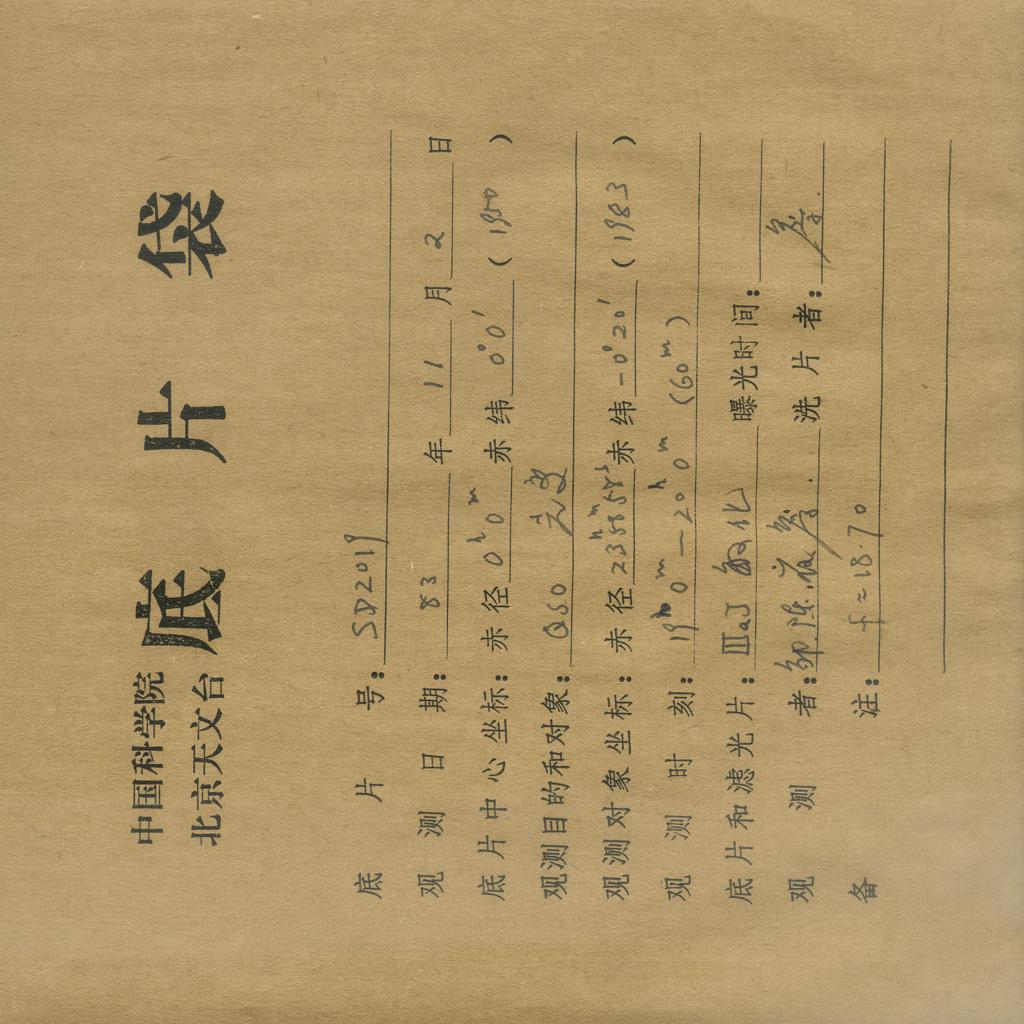 中国科学院
北京天文台
底片袋
底片号: SD2019
观测日期: 83 年 11 月 2 日
底片中心坐标: 赤径 0ʰ0ᵐ 赤纬 0°0′ (1950)
观测目的和对象: QSO 光变
观测对象坐标: 赤径 23ʰ58ᵐ58ˢ 赤纬 -0°20′ (1983)
观测时刻: 19ʰ0ᵐ—20ʰ0ᵐ (60ᵐ)
底片和滤光片: ⅢaJ 敏化 曝光时间:
观测者: 邹.陈. 洗片者:
备注: F≈18.70